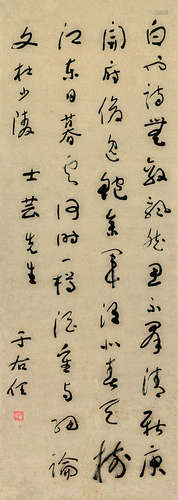 白也詩無敵飄然思不羣清新庾
開府俊逸鮑參軍渭北春天樹
江東日暮雲何時一樽酒重與細論
文 杜少陵
士芸先生
于右任